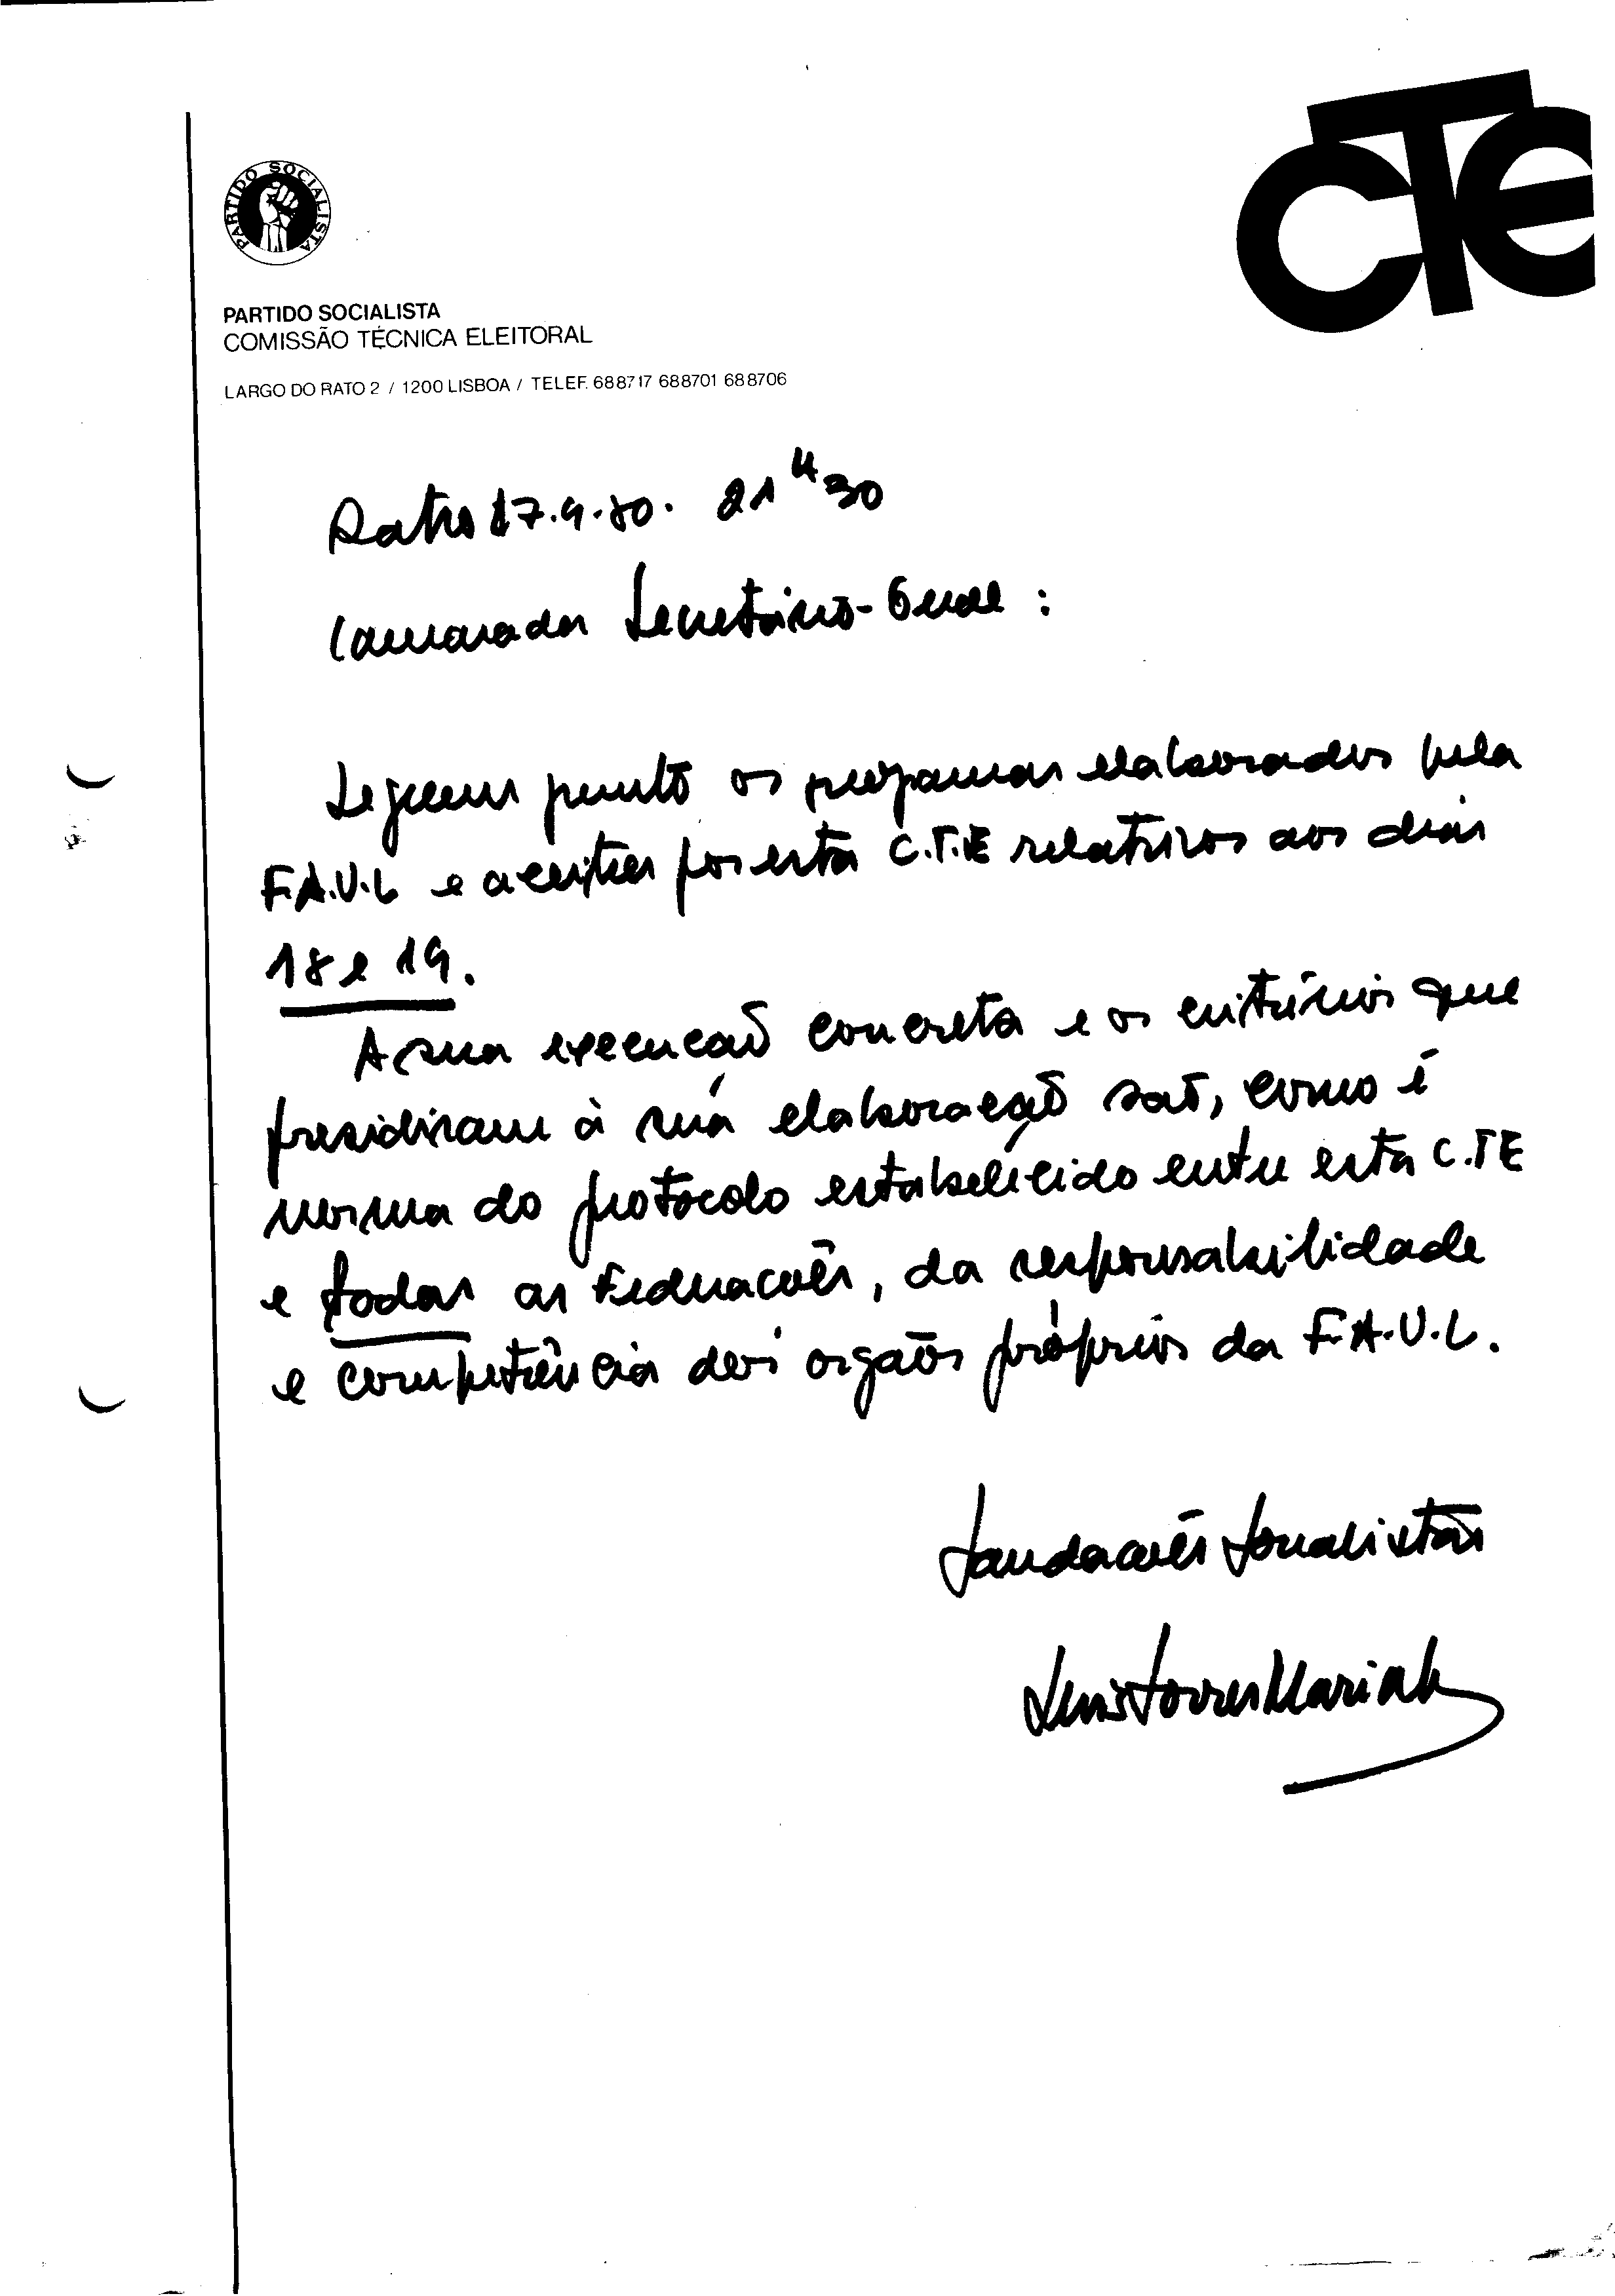 CTE
PARTIDO SOCIALISTA
PARTIDO SOCIALISTA
COMISSÃO TÉCNICA ELEITORAL
LARGO DO RATO 2 / 1200 LISBOA / TELEF. 688717 688701 688706
Rato 17.9.80. 21H30
Camarada Secretário-Geral :
Seguem junto os programas elaborados pela
F.A.U.L e aceites por esta C.T.E relativos aos dias
18 e 19.
A sua execução concreta e os critérios que
presidiram à sua elaboração são, como é
norma do protocolo estabelecido entre esta C.TE
e todas as Federações, da responsabilidade
e competência dos orgãos próprios da F.A.U.L.
Saudações Socialistas